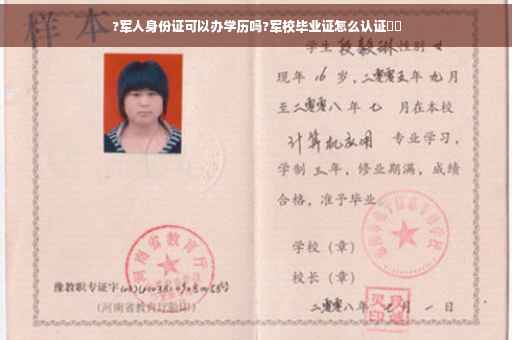 ?军人身份证可以办学历吗?军校毕业证怎么认证
样本
学生 段毅琳 性别 女
现年 16 岁，二零零五年 九月
至二零零八年 七 月在本校
计算机应用 专业学习，
学制 三 年，修业期满，成绩
合格，准予毕业
学校（章）
校长（章）
二零零八年 七 月 一 日
河南省教育厅
豫教职专证字
（河南省教育厅验印）